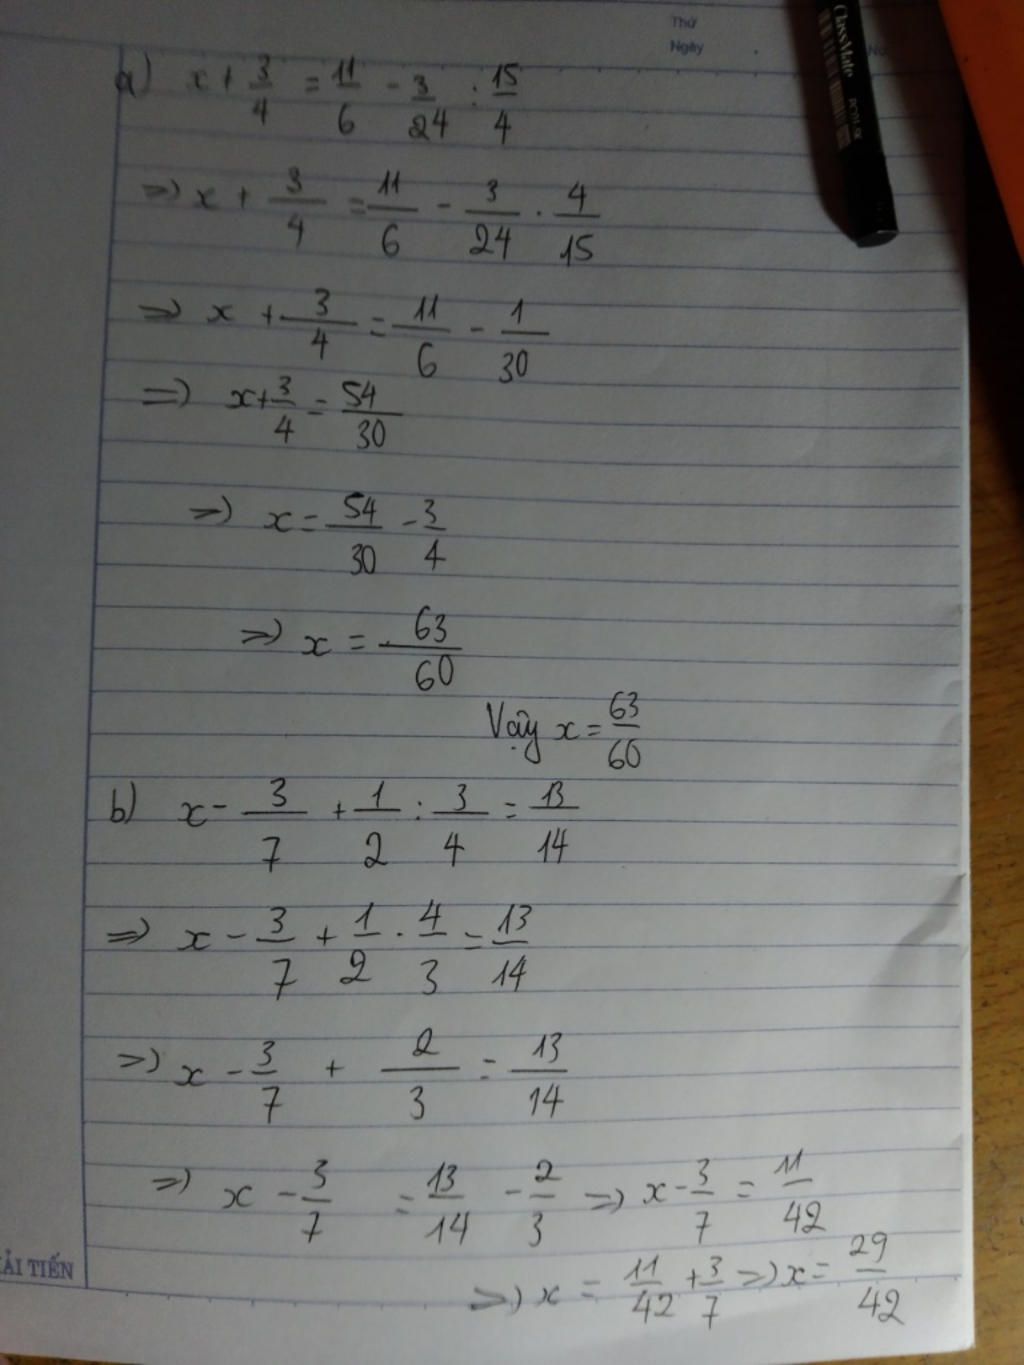 Thứ
Ngày
No
ClassMate
a) x + 3/4 = 11/6 - 3/24 : 15/4
=> x + 3/4 = 11/6 - 3/24 . 4/15
=> x + 3/4 = 11/6 - 1/30
=> x + 3/4 = 54/30
=> x = 54/30 - 3/4
=> x = 63/60
Vậy x = 63/60
b) x - 3/7 + 1/2 : 3/4 = 13/14
=> x - 3/7 + 1/2 . 4/3 = 13/14
=> x - 3/7 + 2/3 = 13/14
=> x - 3/7 = 13/14 - 2/3 => x - 3/7 = 11/42
=> x = 11/42 + 3/7 => x = 29/42
ẢI TIẾN